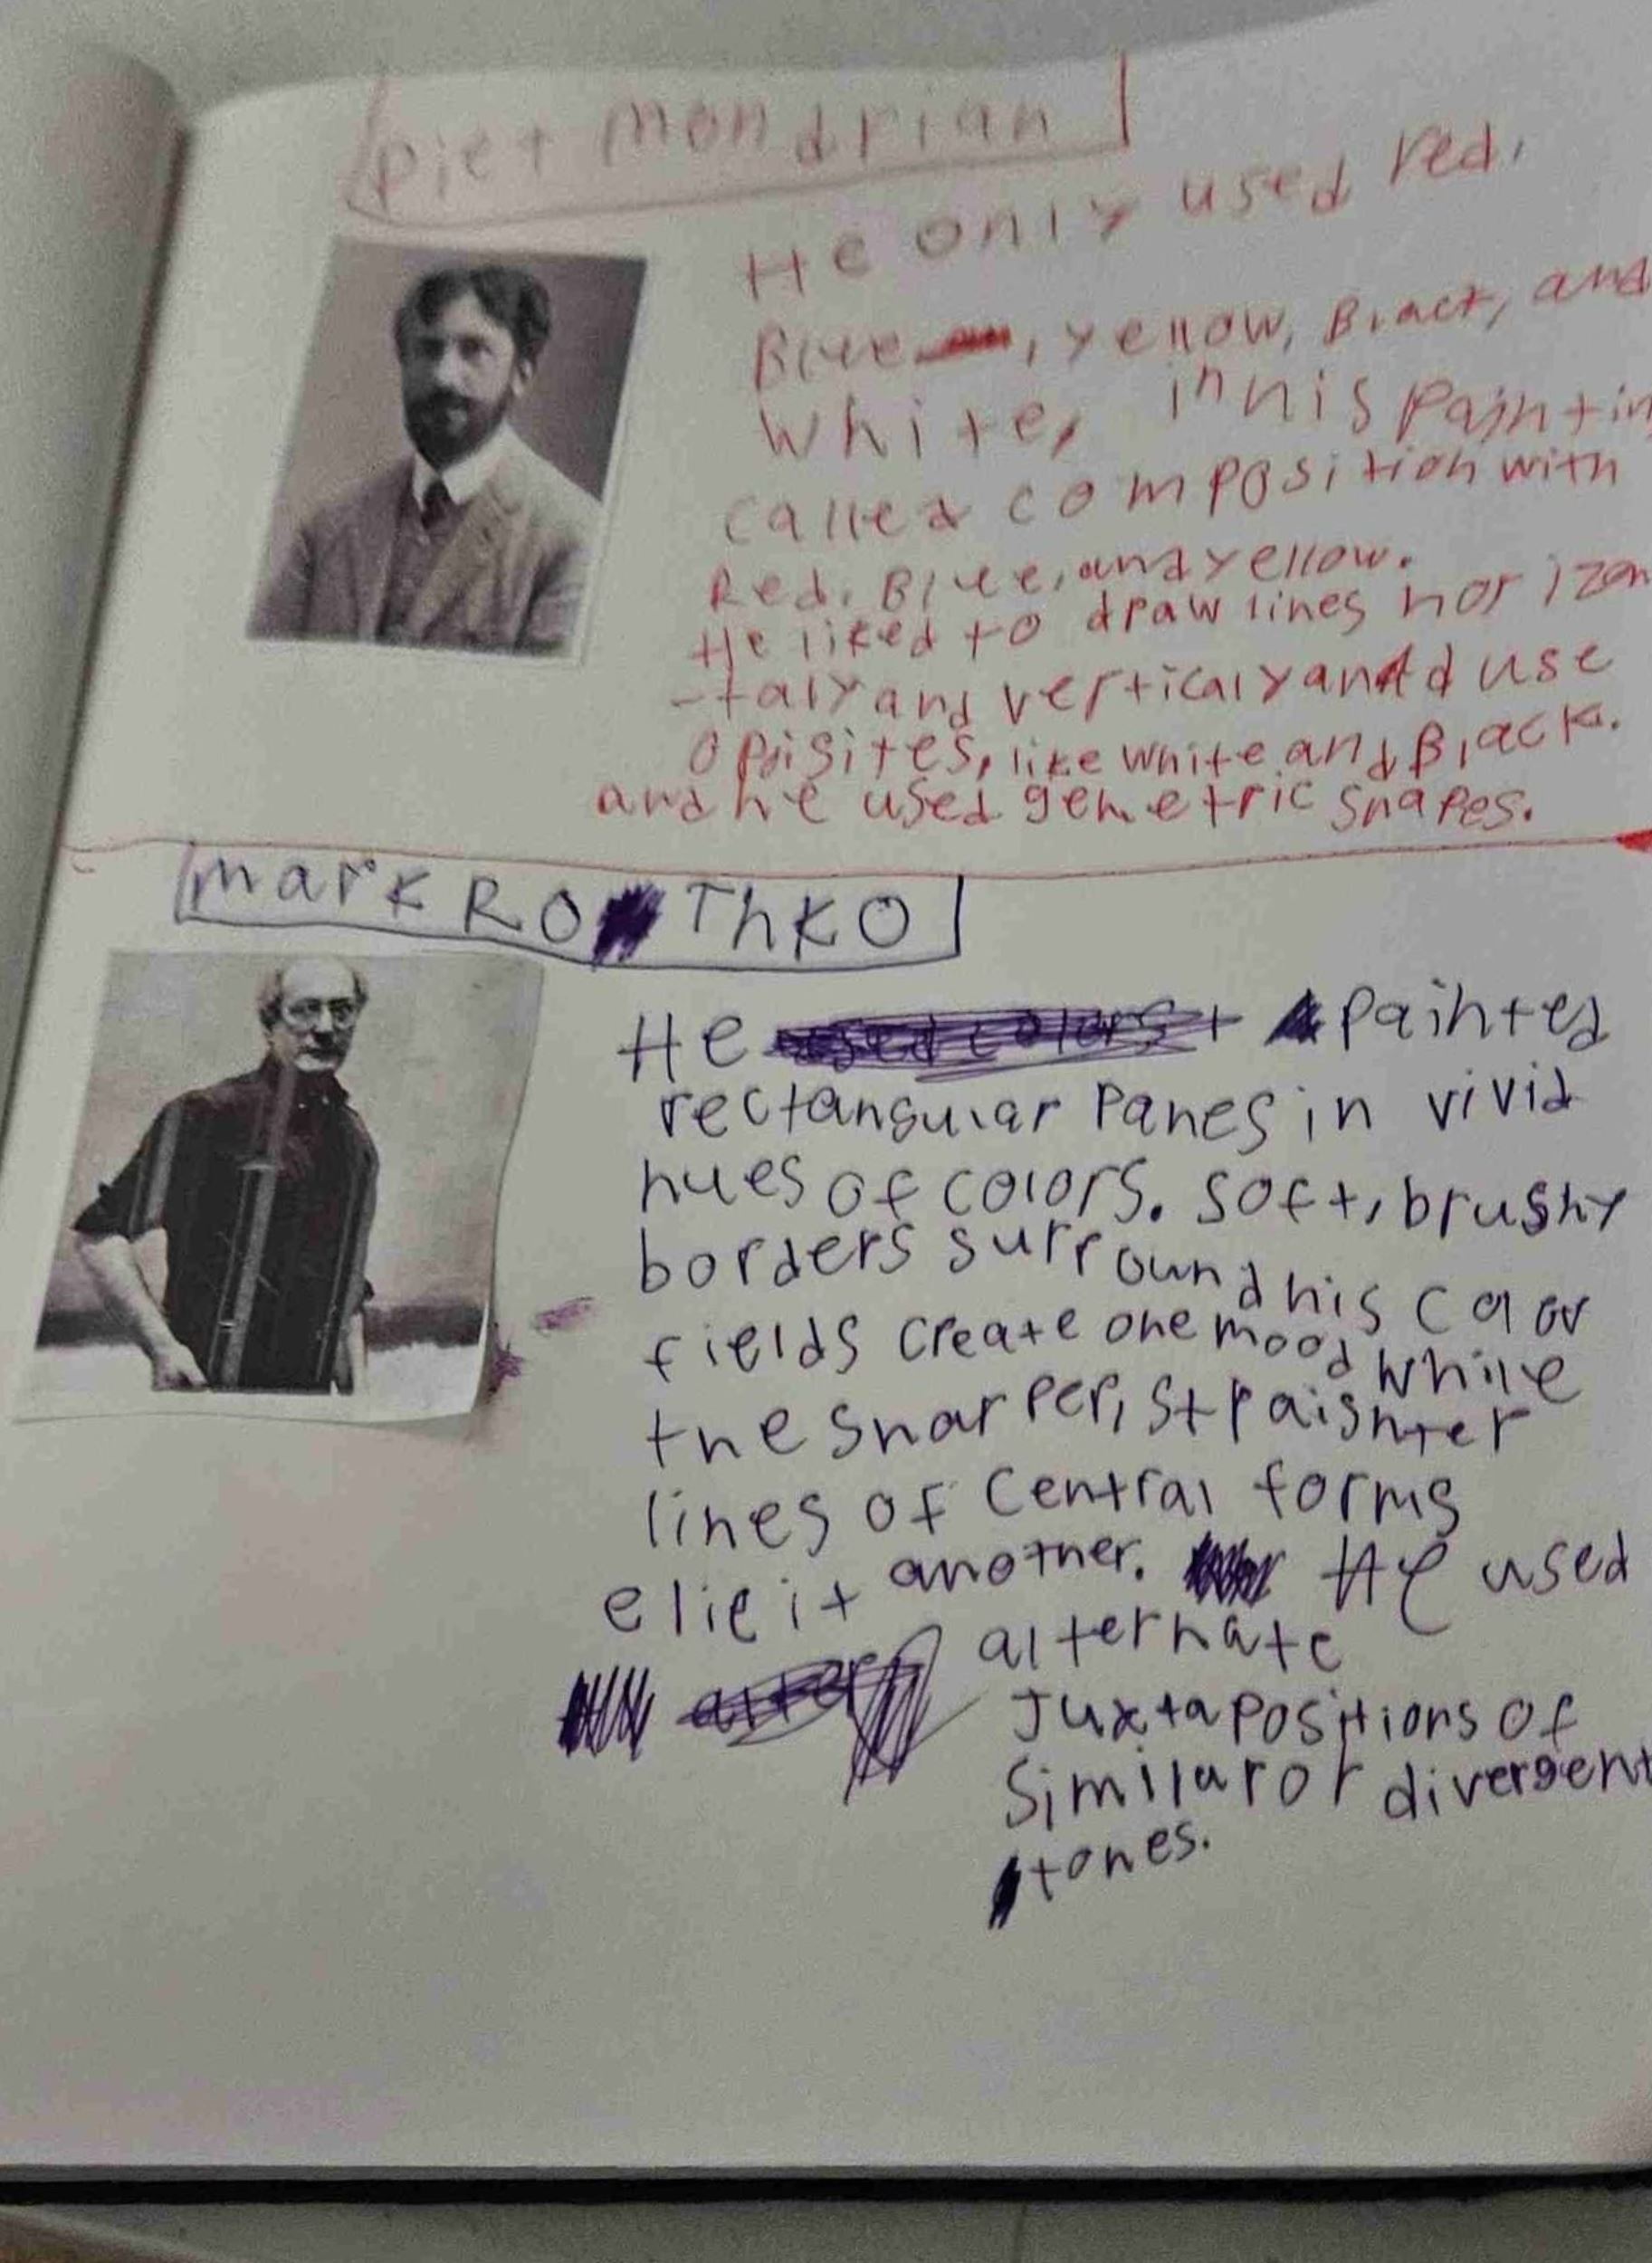 piet mondrian
He only used red,
Blue, yellow, Black, and
white, in his paintin
called composition with
Red, Blue, and yellow.
He liked to draw lines horizon
-taly and verticaly and use
oposites, like white and Black.
and he used gemetric shapes.
mark RoThKO
He painted
rectangular panes in vivid
hues of colors. soft, brushy
borders surround his color
fields create one mood while
the sharper, straighter
lines of central forms
elicit another. He used
alternate
Juxtapositions of
similar or divergent
tones.